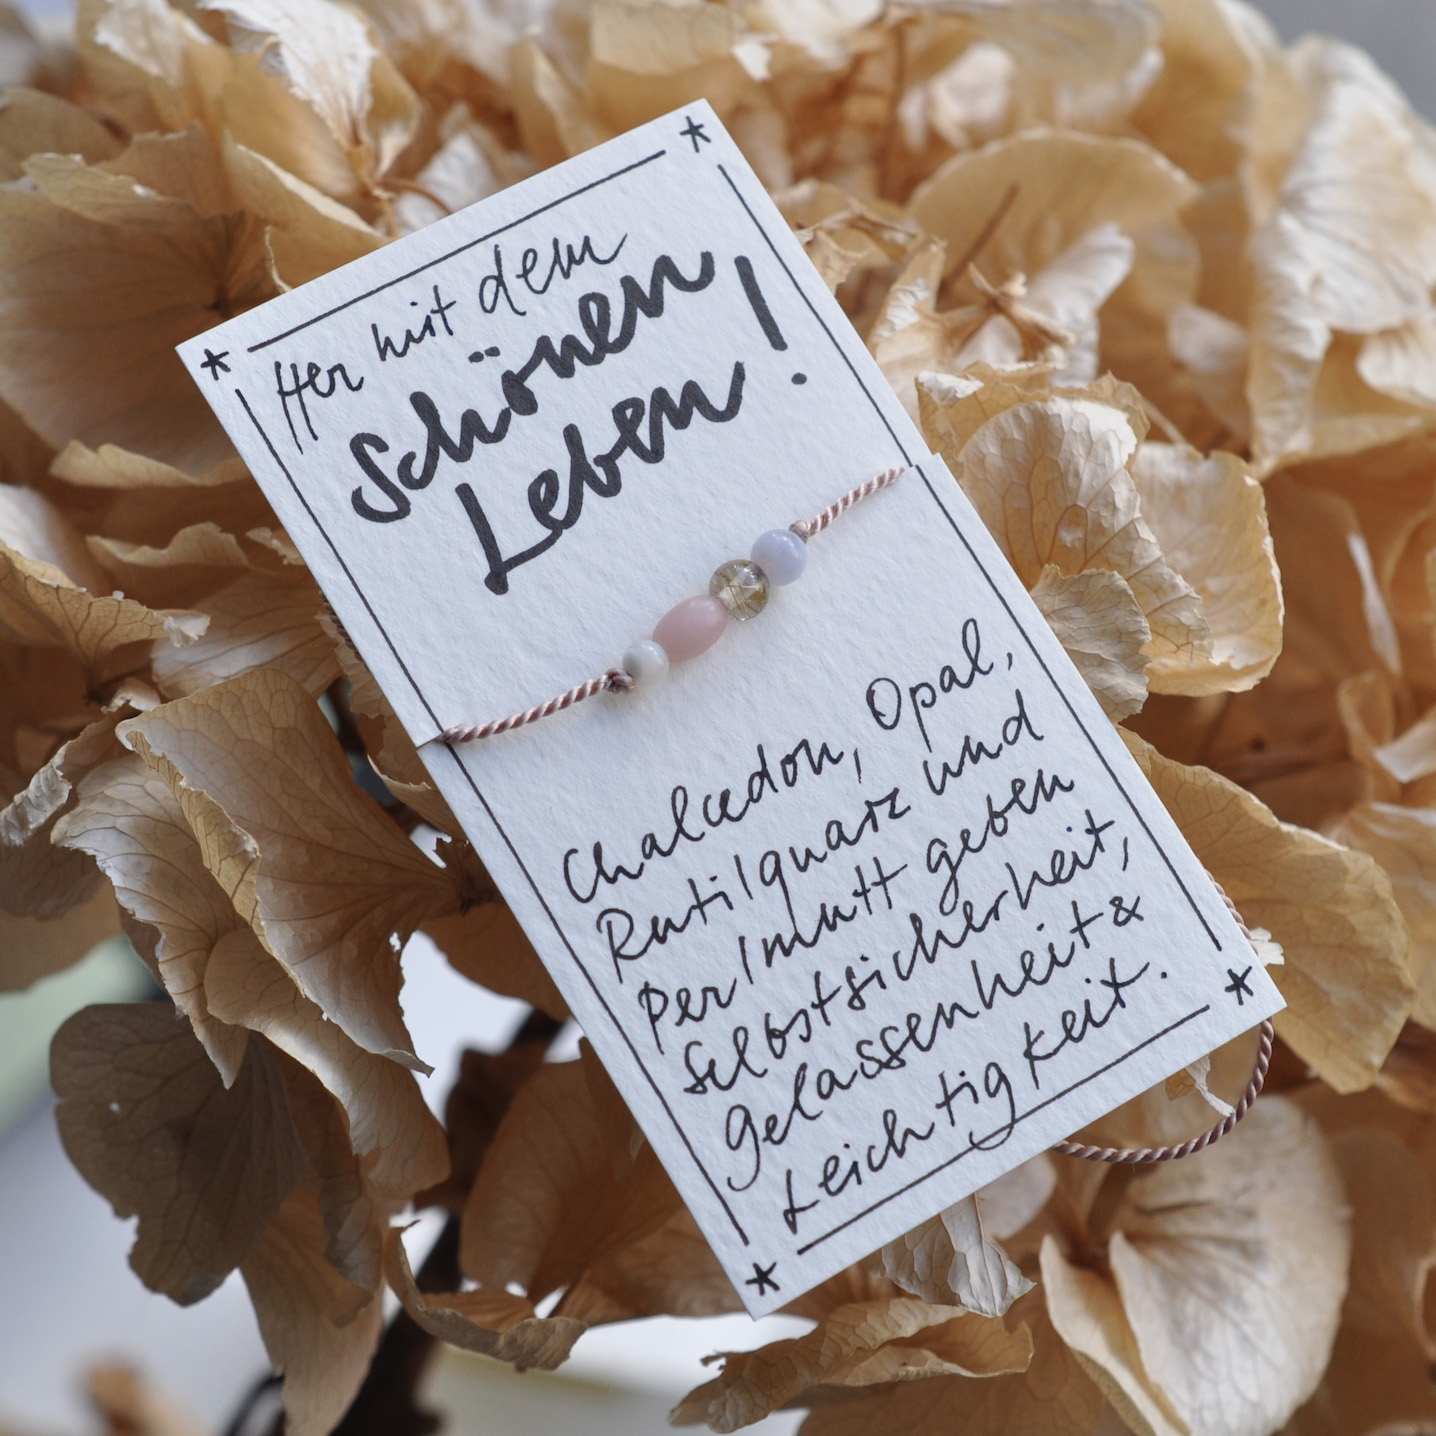 Her mit dem
Schönen
Leben!
Chalcedon, Opal,
Rutilquarz und
Perlmutt geben
Selbstsicherheit,
Gelassenheit &
Leichtigkeit.